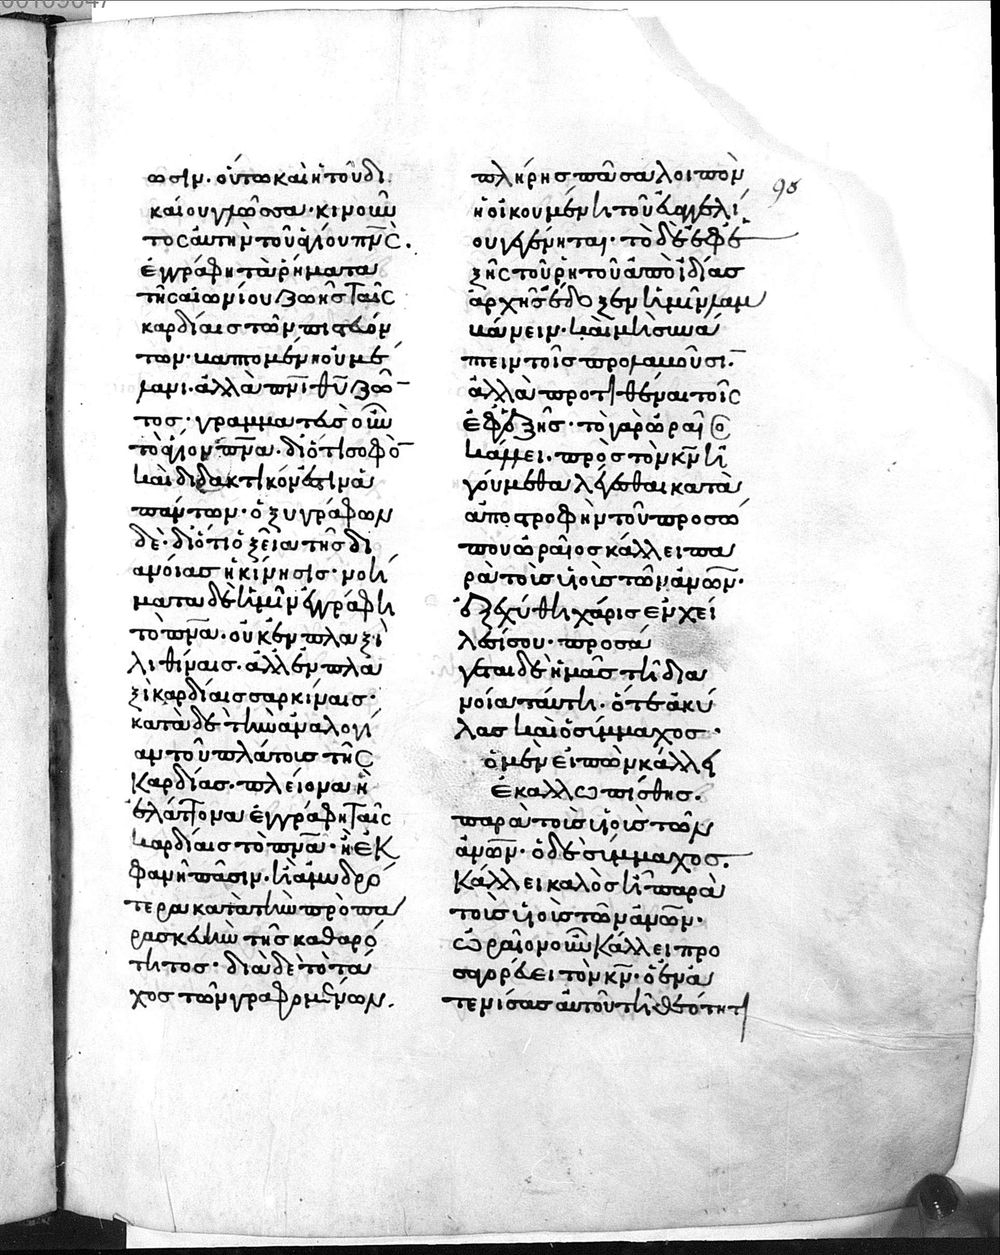 ωσιν. οὕτω καὶ ἡ τοῦ δι
καίου γλῶσσα· κινοῦν
τος αὐτὴν τοῦ ἁγίου πν̅ς.
ἐγγράφη τὰ ῥήματα
τῆς αἰωνίου ζωῆς ταῖς
καρδίαις τῶν πιστευόν
των· κατὰ τὸ μένου μέ
λανι. ἀλλὰ πν̅ι θυ̅ ζῶν
τος· γραμματεὺς οὖν
τὸ ἅγιον πν̅α. διότι σοφὸν
καὶ διδακτικόν ἐστι νᾶ
πάντων· ὀξυγράφων
δὲ· διότι ὀξεῖα τῆς δι
ανοίας ἡ κίνησις· νοή
ματα δὲ ἡμῖν ἐγγράφει
τὸ πν̅α. οὐκ ἐν πλαξὶ
λιθίναις. ἀλλ' ἐν πλα
ξὶ καρδίαις σαρκίναις·
κατὰ δὲ τὴν ἀναλογί
αν τοῦ πλάτους τῆς
καρδίας. πλείονα ἢ
ἐλάττονα ἐγγράφη ταῖς
καρδίαις τὸ πν̅α· ἢ ἐκ
φανῆ πᾶσιν. ἢ ἀμυδρό
τερα κατὰ τὴν προπα
ρασκευὴν τῆς καθαρό
τητος· διὰ δὲ τὸ τά
χος τῶν γραφομένων.
πλήρης πᾶσα λοιπὸν
ἡ οἰκουμένη τοῦ εὐαγγελί
ου γεγένηται· τὸ δὲ ἐφε
ξῆς τοῦ ῥητοῦ ἀπὸ ἰδίας
ἀρχῆς ἔδοξεν ἡμῖν λαμ
βάνειν. καὶ μὴ συνά
πτειν τοῖς προλαβοῦσι.
ἀλλὰ προτιθέναι τοῖς
ἐφεξῆς· τὸ γὰρ ὡραῖος
κάλλει. πρὸς τὸν κν̅ ἡ
γούμεθα λέγεσθαι κατὰ
ἀποστροφὴν τοῦ προσώ
που ὡραῖος κάλλει πα
ρὰ τοὺς υἱοὺς τῶν ἀνω̅ν·
ἐξεχύθη χάρις ἐν χεί
λεσί σου· προσά
γεται δὲ ἡμᾶς τῇ δια
νοίᾳ ταύτῃ. ὅτε ἀκύ
λας καὶ ὁ σύμμαχος·
ὁ μὲν εἰπὼν κάλλει
ἐκαλλωπίσθης.
παρὰ τοὺς υἱοὺς τῶν
ἀνω̅ν. ὁ δὲ σύμμαχος.
Κάλλει καλὸς εἶ παρὰ
τοὺς υἱοὺς τῶν ἀνω̅ν.
ὡραῖον οὖν Κάλλει προ
σαγορεύει τὸν κν̅. ὁ ἐνα
τενίσας αὐτοῦ τῇ θεότητι